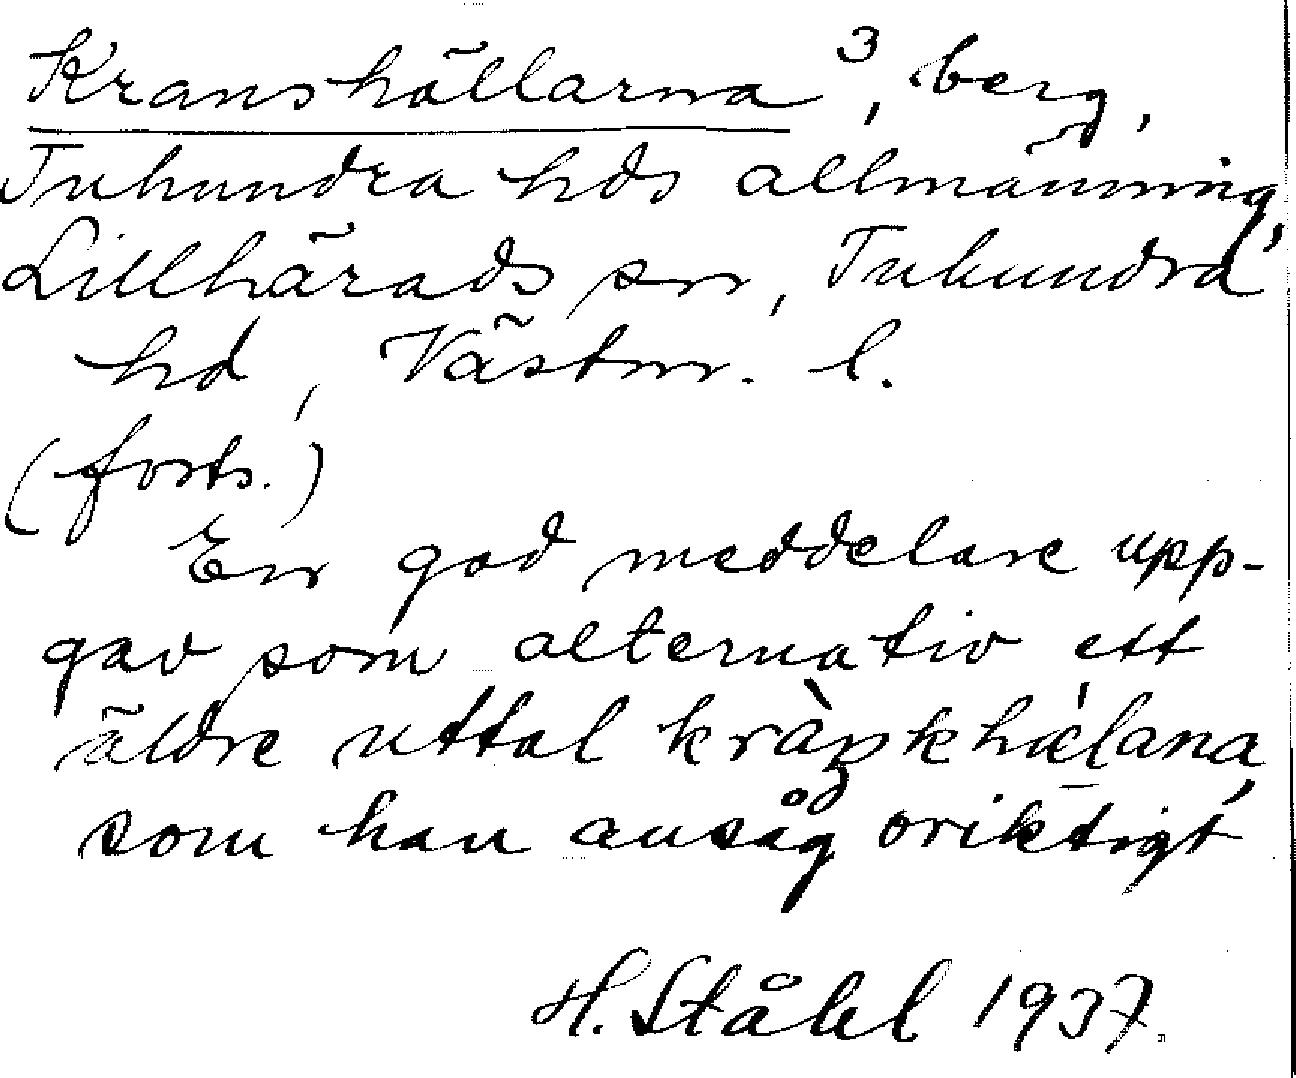 Kranshällarna 3, berg,
Tuhundra hds allmänning,
Lillhärads sn, Tuhundra
hd, Västm. l.
(forts.)
En god meddelare upp-
gav som alternativ ett
äldre uttal
som han ansåg oriktigt
H. Ståhl 1937.